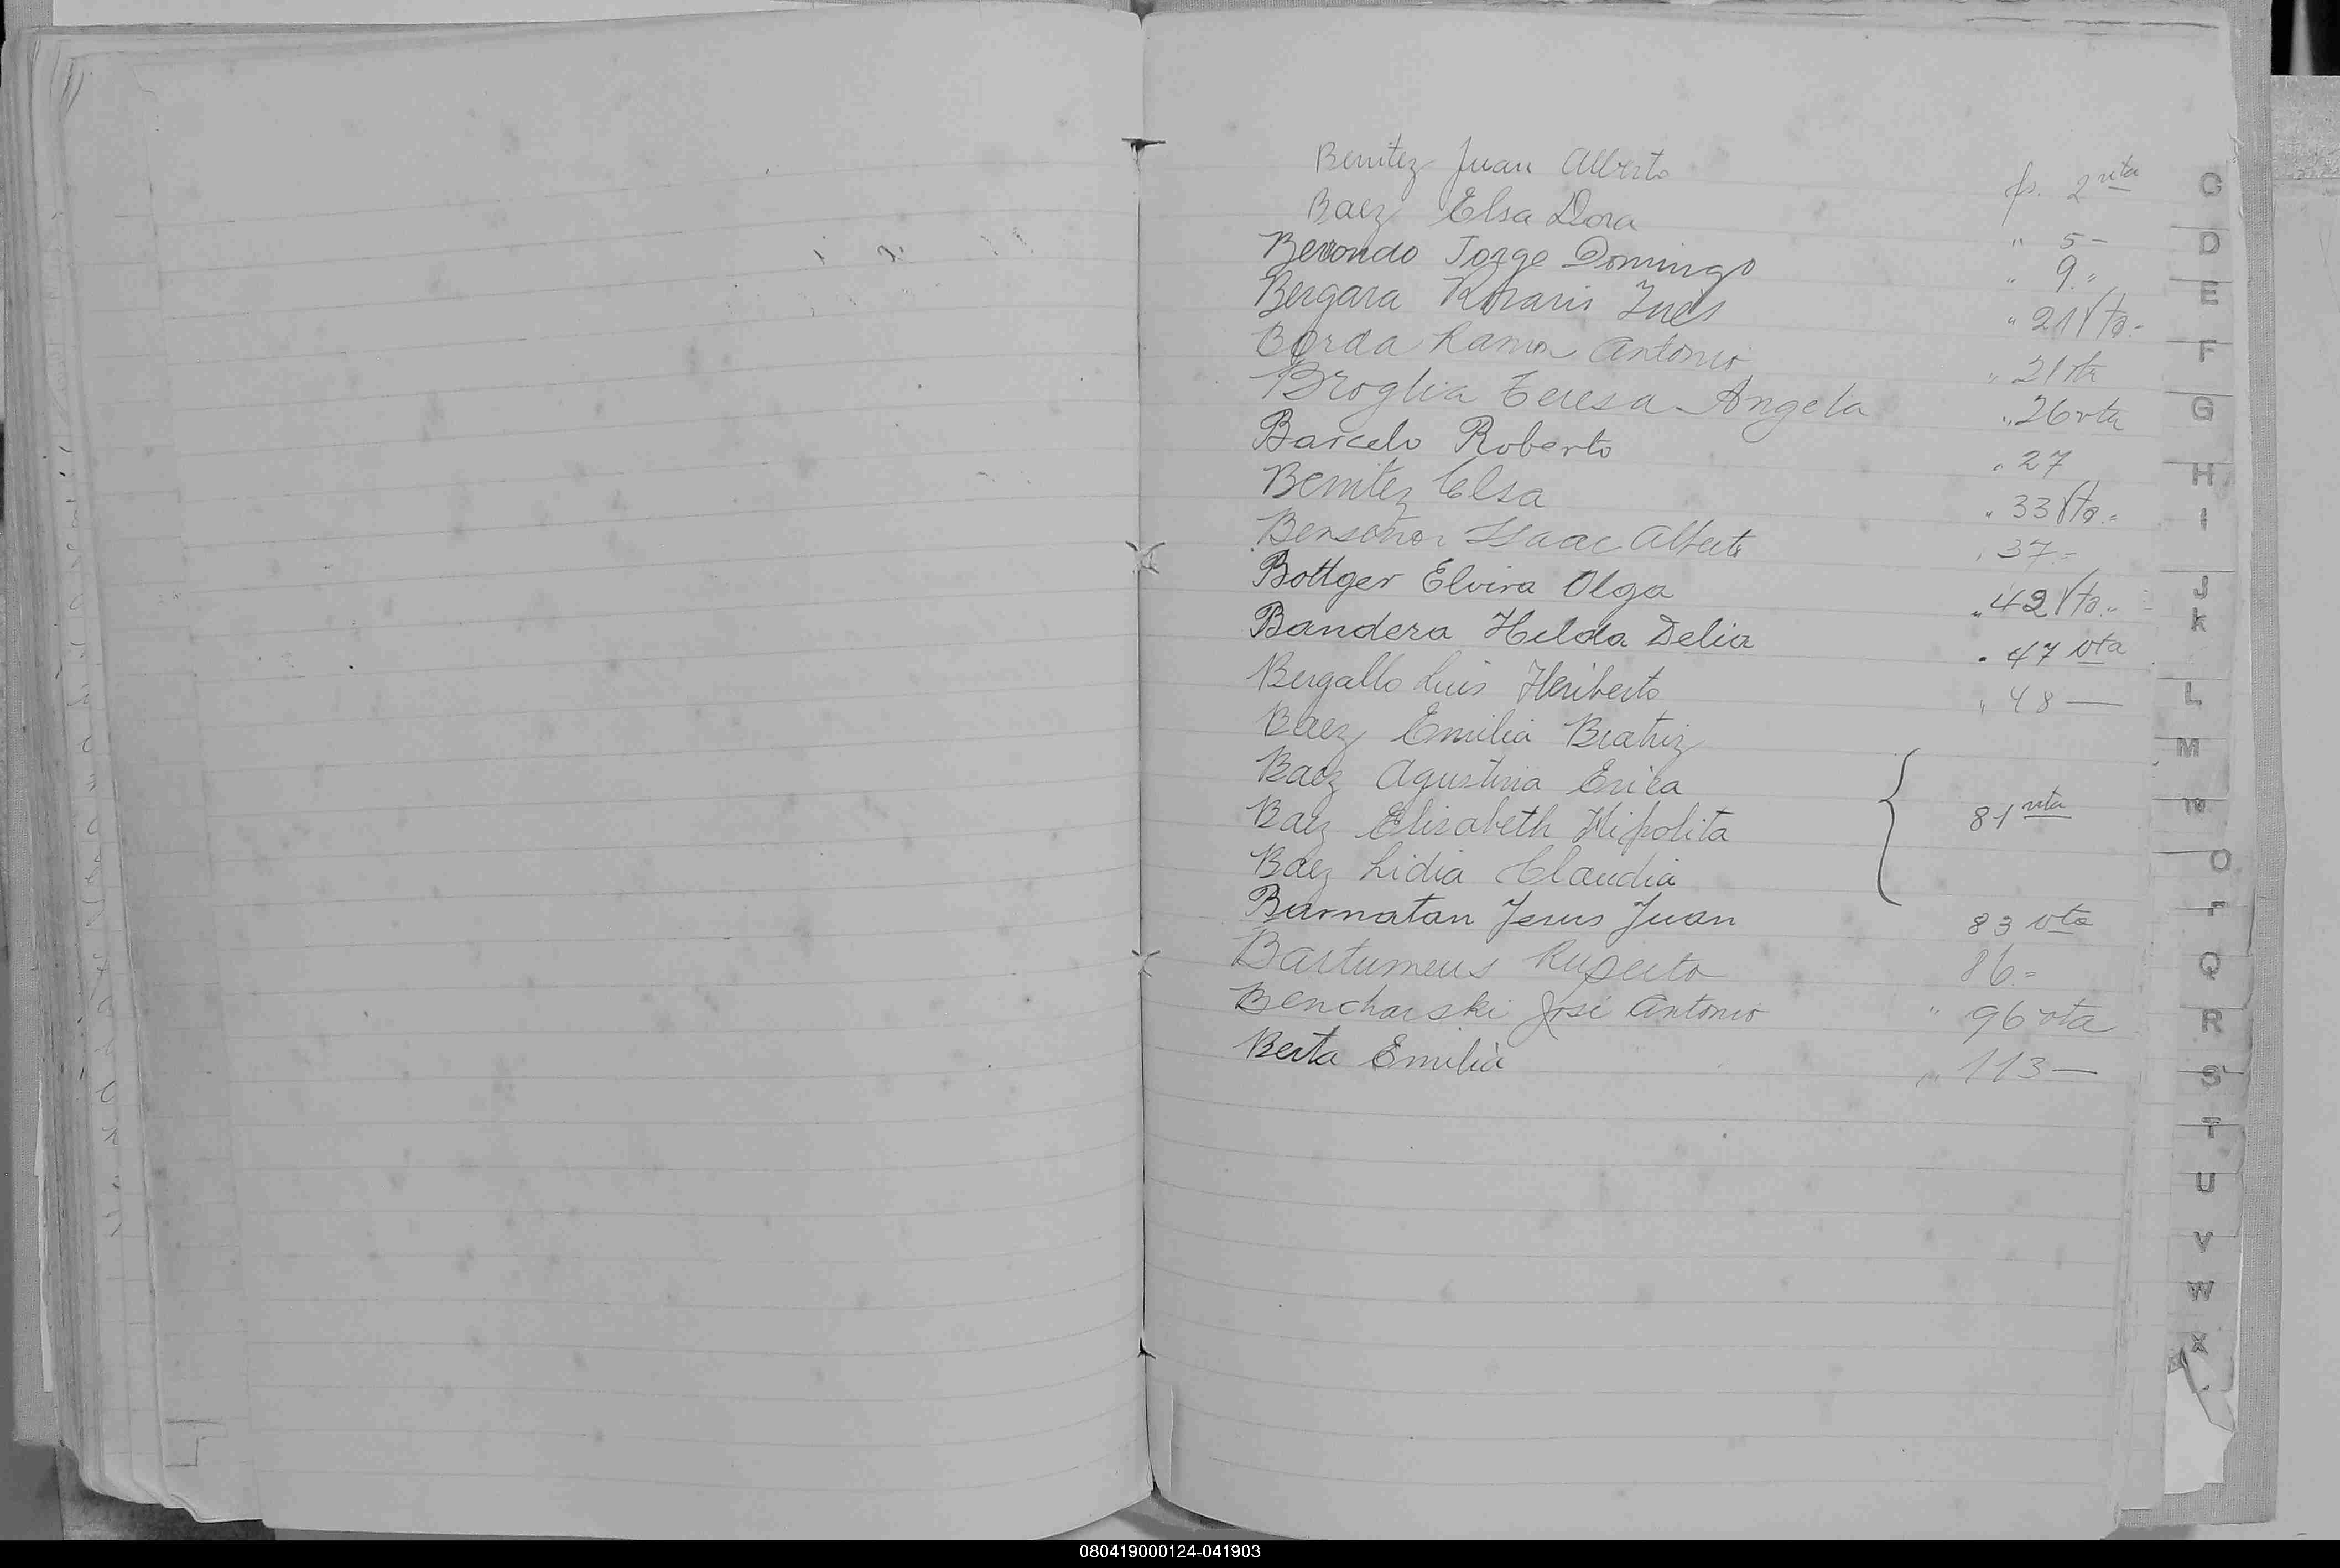 Benitez Juan Alberto fs. 2 vta
Baez Elsa Dora " 5 -
Berondo Jorge Domingo " 9 "
Bergara Inés " 21 Vta.
Borda Ramon Antonio " 21 vta
Broglia Teresa Angela " 26 vta
Barcelo Roberto " 27
Benitez Elsa " 33 Vta. =
Bensoñor Isaac Alberto " 37. =
Bottger Elvira Olga " 42 Vta. "
Bandera Hilda Delia " 47 vta
Bergallo Luis Heriberto " 48 —
Baez Emilia Beatriz
Baez Agustina Erica
Baez Elisabeth Hipolita 81 vta
Baez Lidia Claudia
Barnatan Jesus Juan 83 vta
Bartumeus Ruperto 86 =
Bencharski José Antonio " 96 vta
Berta Emilia " 113 —
C
D
E
F
G
H
I
J
K
L
M
N
O
P
Q
R
S
T
U
V
W
X
080419000124-041903